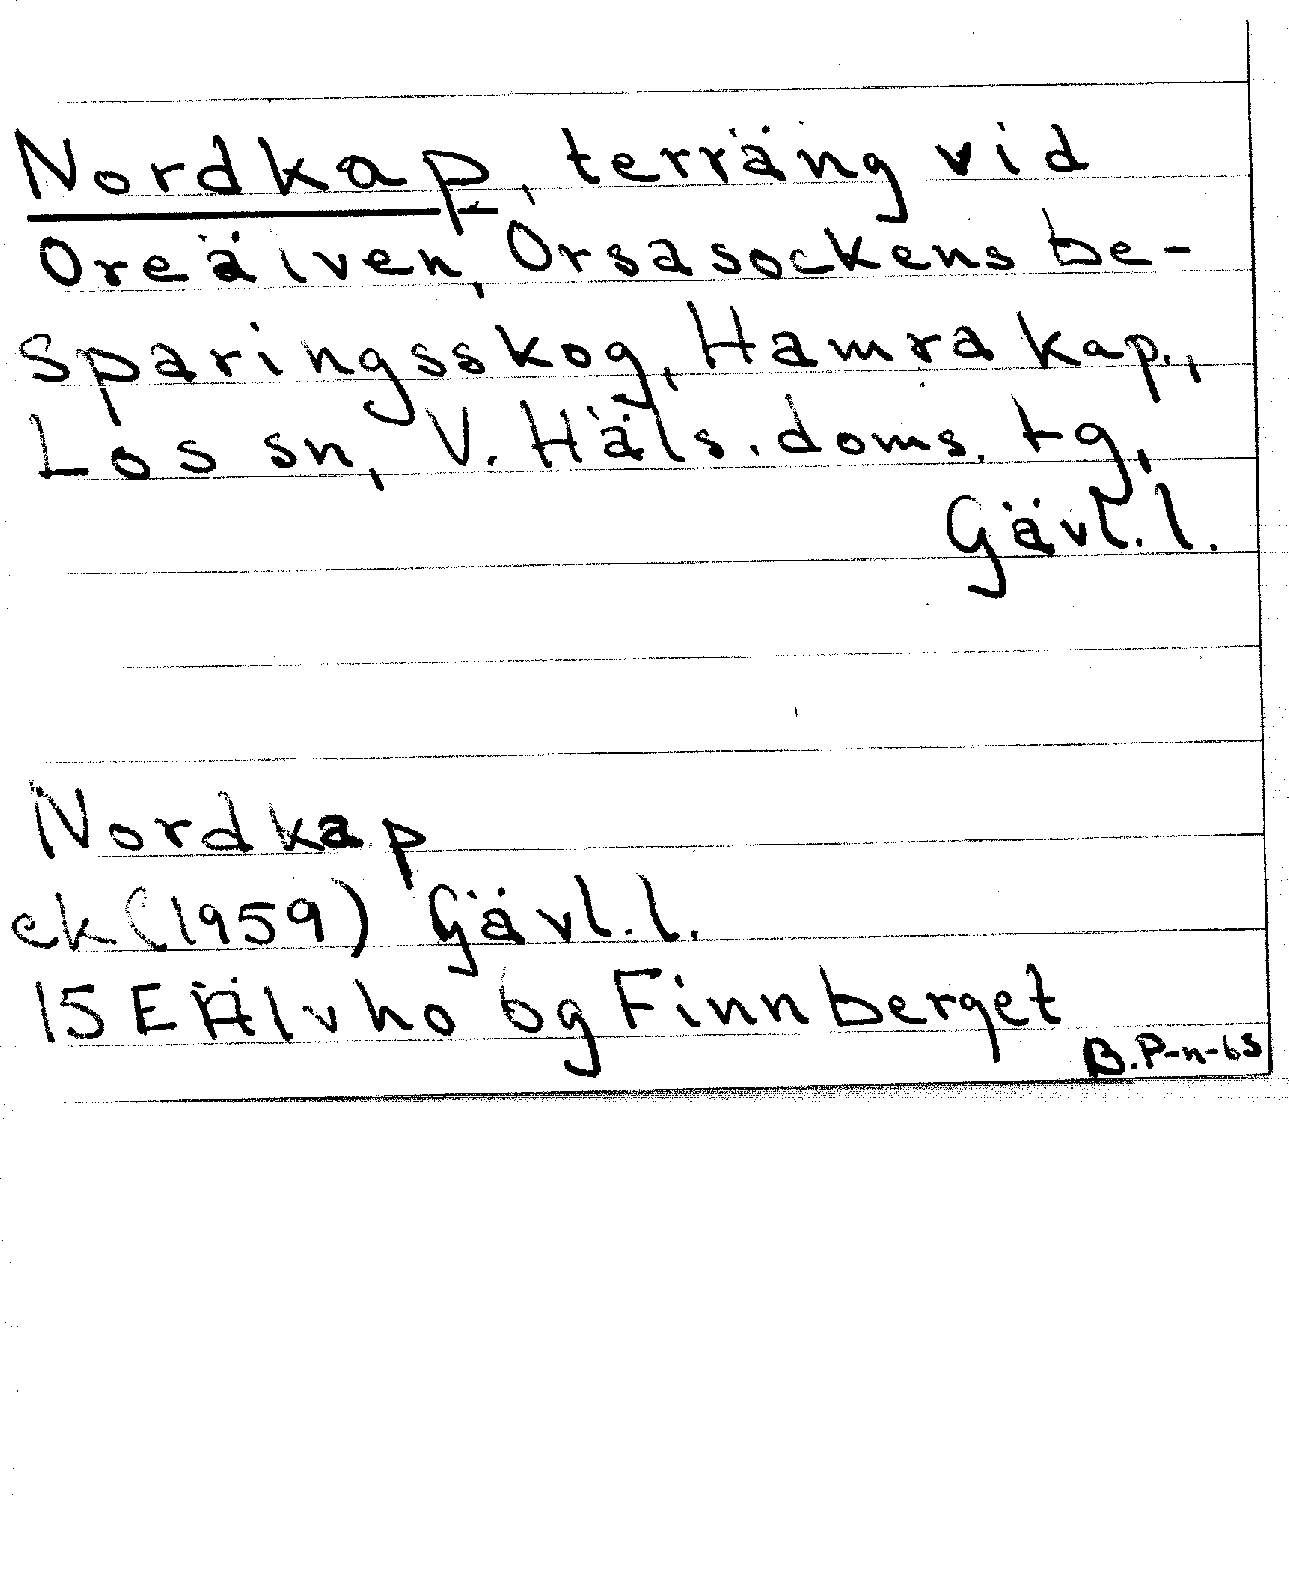 Nordkap, terräng vid
Oreälven, Orsasockens be-
sparingsskog, Hamra kap.,
Los sn, V. Häls. doms. tg,
Gävl. l.
Nordkap
ek (1959) Gävl. l.
15E Älvho og Finnberget